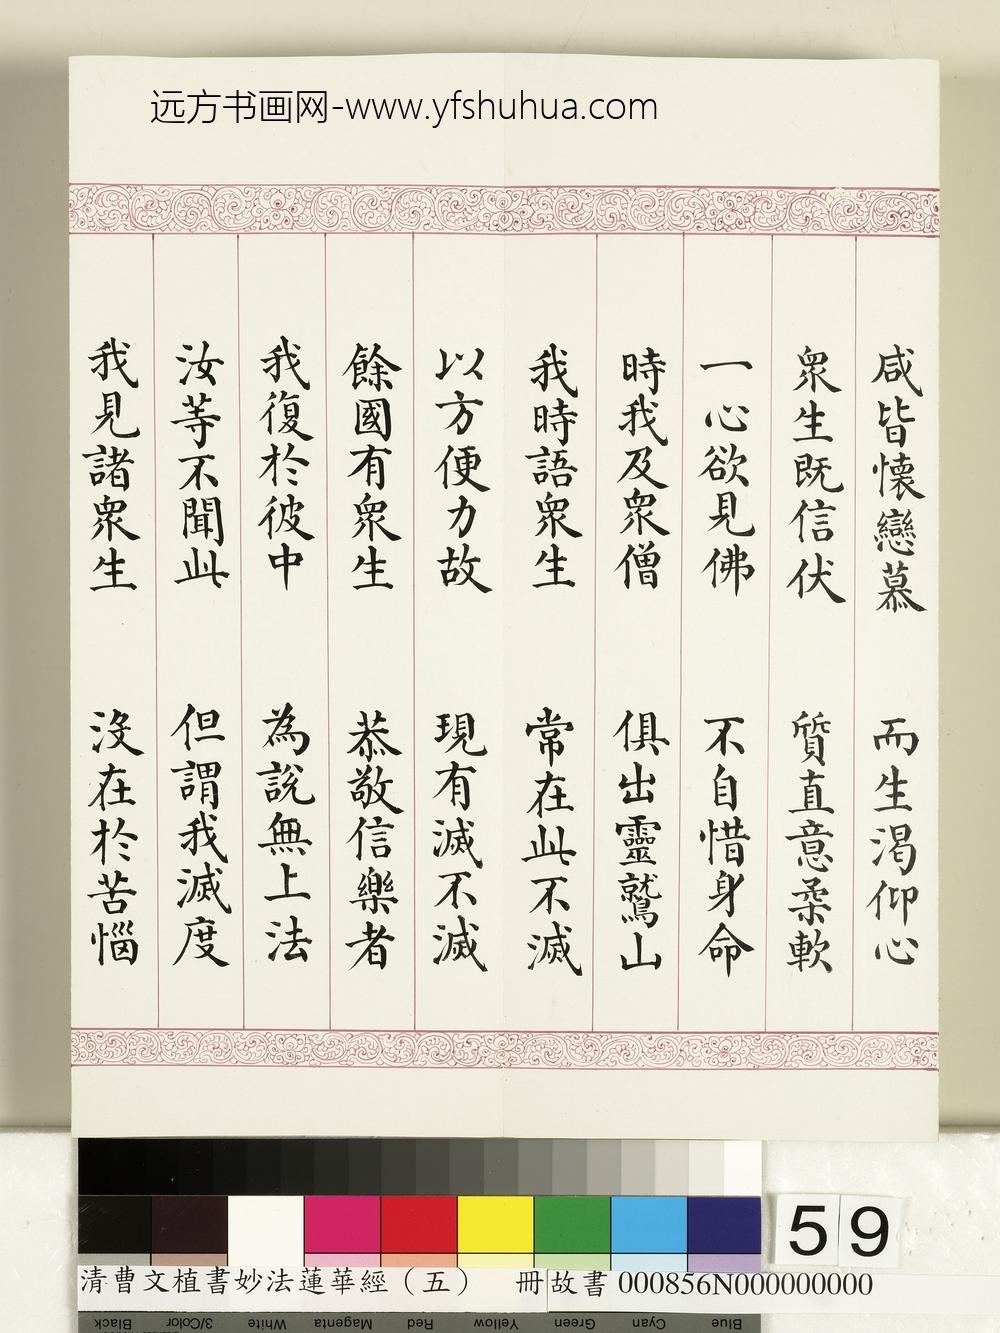 远方书画网-www.yfshuhua.com
咸皆懷戀慕 而生渴仰心
眾生既信伏 質直意柔軟
一心欲見佛 不自惜身命
時我及眾僧 俱出靈鷲山
我時語眾生 常在此不滅
以方便力故 現有滅不滅
餘國有眾生 恭敬信樂者
我復於彼中 為說無上法
汝等不聞此 但謂我滅度
我見諸眾生 沒在於苦惱
59
清曹文植書妙法蓮華經（五） 冊 故書 000856N000000000
Blue Cyan Green Yellow Red Magenta White 3/Color Black